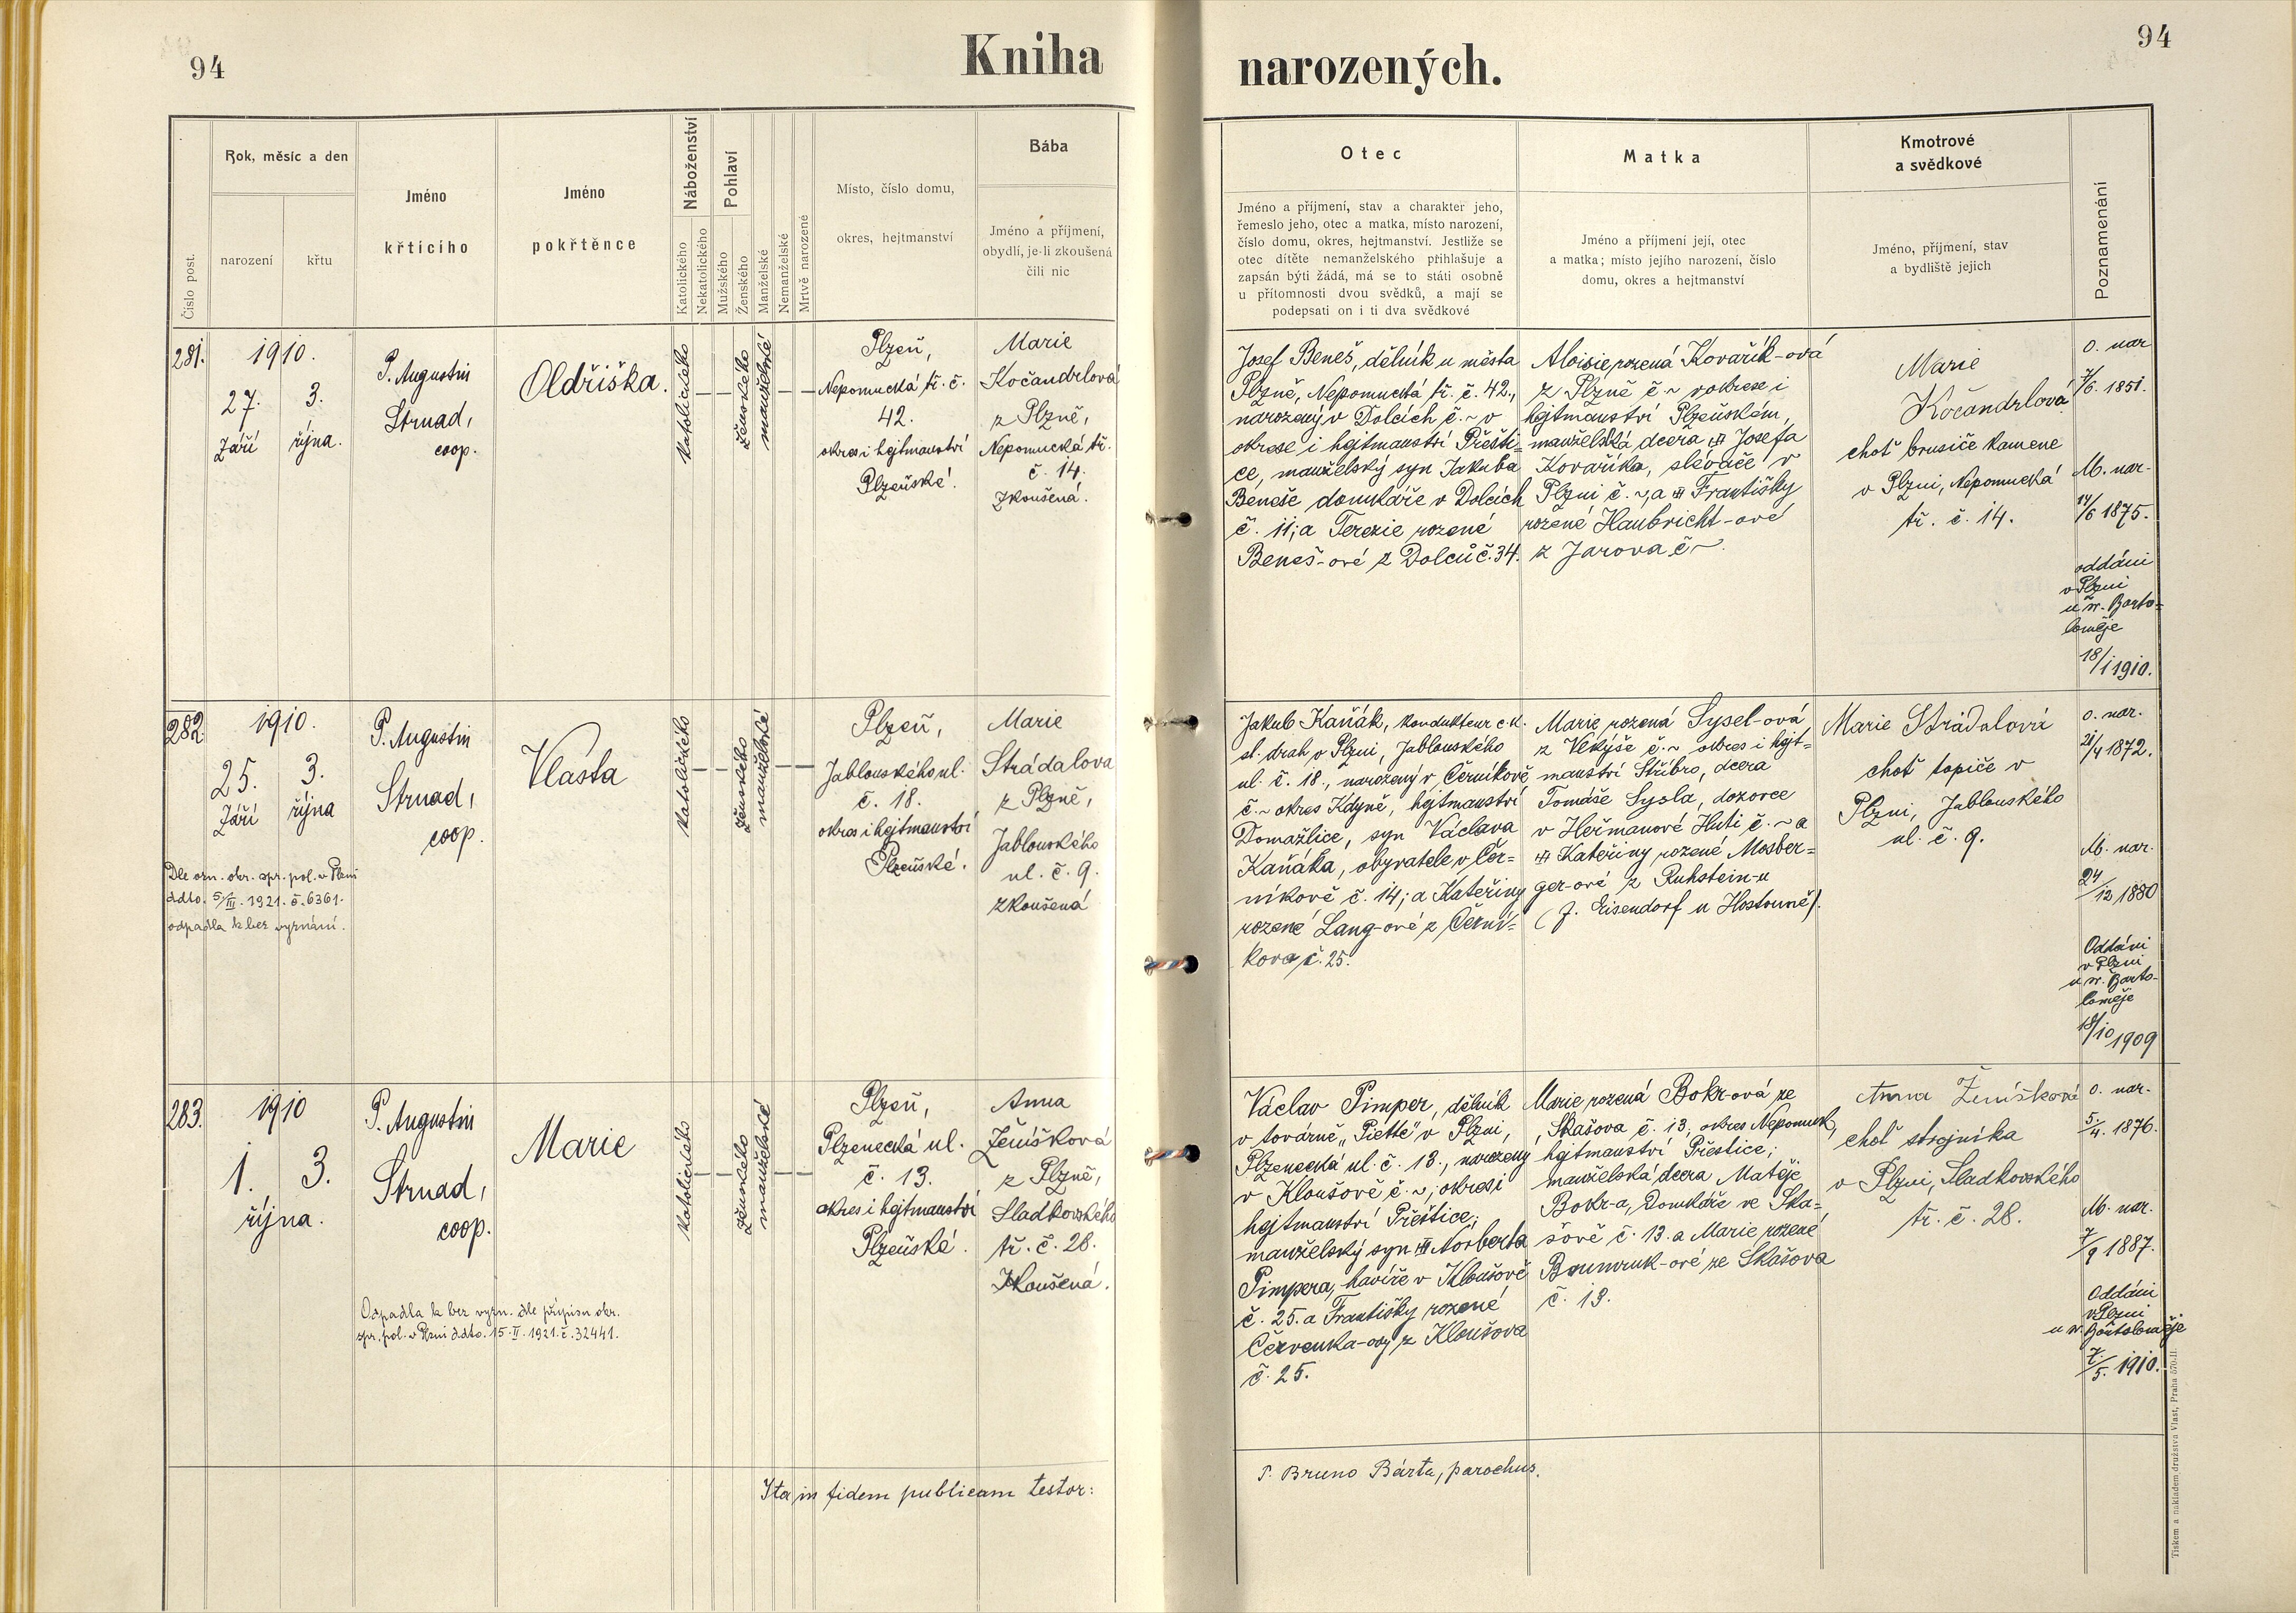 94
Kniha
narozených.
94
Číslo post.
Rok, měsíc a den
narození
křtu
Jméno
křtícího
Jméno
pokřtěnce
Náboženství
Katolického
Nekatolického
Pohlaví
Mužského
Ženského
Manželské
Nemanželské
Mrtvě narozené
Místo, číslo domu,
okres, hejtmanství
Bába
Jméno a příjmení,
obydlí, je-li zkoušená
čili nic
Otec
Jméno a příjmení, stav a charakter jeho,
řemeslo jeho, otec a matka, místo narození,
číslo domu, okres, hejtmanství. Jestliže se
otec dítěte nemanželského přihlašuje a
zapsán býti žádá, má se to státi osobně
u přítomnosti dvou svědků, a mají se
podepsati on i ti dva svědkové
Matka
Jméno a příjmení její, otec
a matka; místo jejího narození, číslo
domu, okres a hejtmanství
Kmotrové
a svědkové
Jméno, příjmení, stav
a bydliště jejich
Poznamenání
281.
1910.
27. 3.
Září října.
P. Augustin
Strnad,
coop.
Oldřiška.
Katolického
Ženského
manželské
Plzeň,
Nepomucká tř. č.
42.
okres i hejtmanství
Plzeňské.
Marie
Kočandrlová
z Plzně,
Nepomucká tř.
č. 14.
zkoušená.
Josef Beneš, dělník u města
Plzně, Nepomucká tř. č. 42.,
narozený v Dolcích č. ~ v
okrese i hejtmanství Přešti-
ce, manželský syn Jakuba
Beneše domkáře v Dolcích
č. 11; a Terezie rozené
Beneš-ové z Dolců č. 34.
Aloisie, rozená Kovařík-ová
z Plzně č. ~ v okrese i
hejtmanství Plzeňském,
manželská dcera Josefa
Kovaříka, slévače v
Plzni č. ~, a Františky
rozené Haubricht-ové
z Jarova č ~.
Marie
Kočandrlová
choť brusiče kamene
v Plzni, Nepomucká
tř. č. 14.
O. nar
7/6. 1851.
M. nar.
14/6 1875.
oddáni
v Plzni
u sv. Barto-
loměje
18/1 1910.
282.
1910.
25. 3.
Září října
P. Augustin
Strnad,
coop.
Vlasta
Katolického
Ženského
manželské
Plzeň,
Jablonského ul.
č. 18.
okres i hejtmanství
Plzeňské.
Marie
Strádalova
z Plzně,
Jablonského
ul. č. 9.
zkoušená
Dle ozn. okr. spr. pol. v Plzni
ddto. 5/III. 1921. č. 6361.
odpadla k bez vyznání.
Jakub Kaňák, kondukteur c.k.
st. drah v Plzni, Jablonského
ul. č. 18., narozený v Černíkově
č. ~ okres Kdyně, hejtmanství
Domažlice, syn Václava
Kaňáka, obyvatele v Čer-
níkově č. 14; a Kateřiny
rozené Lang-ové z Černí-
kova č. 25.
Marie, rozená Sysel-ová
z Vlkýše č. ~ okres i hejt-
manství Stříbro, dcera
Tomáše Sysla, dozorce
v Heřmanové Huti č. ~ a
Kateřiny rozené Mosber-
ger-ové z Ruhstein-u
(f. Eisendorf u Hostouně).
Marie Strádalová
choť topiče v
Plzni, Jablonského
ul. č. 9.
O. nar.
21/4 1872.
M. nar.
24/12 1880
Oddáni
v Plzni
u sv. Barto-
loměje
18/10 1909
283.
1910
1. 3.
října.
P. Augustin
Strnad,
coop.
Marie
Katolického
Ženského
manželské
Plzeň,
Plzenecká ul.
č. 13.
okres i hejtmanství
Plzeňské.
Anna
Ženíšková
z Plzně,
Sladkovského
tř. č. 28.
Zkoušená.
Odpadla k bez vyzn. dle přípisu okr.
spr. pol. v Plzni ddto. 15. II. 1921. č. 32441.
Václav Pimper, dělník
v továrně „Piette“ v Plzni,
Plzenecká ul. č. 13., narozený
v Kloušově č. ~; okres i
hejtmanství Přeštice;
manželský syn Norberta
Pimpera, havíře v Kloušově
č. 25. a Františky rozené
Červenka-ovy z Kloušova
č. 25.
Marie rozená Bokr-ová ze
Skašova č. 13, okres Nepomuk,
hejtmanství Přeštice;
manželská dcera Matěje
Bokr-a, Domkáře ve Ska-
šově č. 13. a Marie rozené
-ové ze Skašova
č. 13.
Anna Ženíšková
choť strojníka
v Plzni, Sladkovského
tř. č. 28.
O. nar.
5./4. 1876.
M. nar.
7/9 1887.
Oddáni
v Plzni
u sv. Bartoloměje
7./5. 1910.
Ita in fidem publicam testor:
P. Bruno Bárta, parochus.
Tiskem a nákladem družstva Vlast, Praha 570-II.